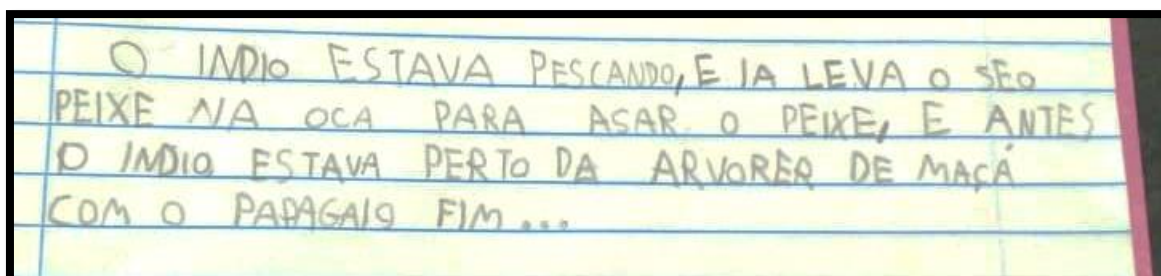 O INDIO ESTAVA PESCANDO, E IA LEVA O SEO
PEIXE NA OCA PARA ASAR O PEIXE, E ANTES
O INDIO ESTAVA PERTO DA ARVORER DE MAÇÁ
COM O PAPAGAIO FIM...